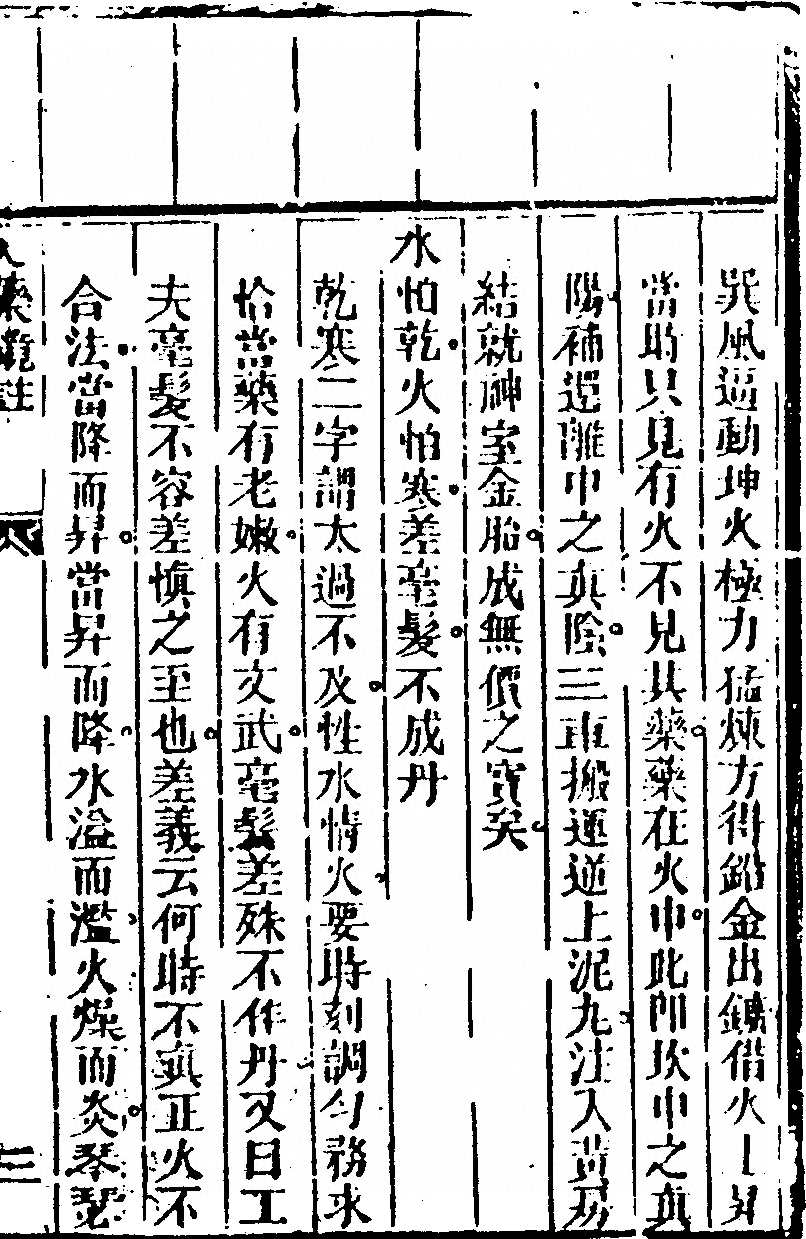 巽風逼動坤火極力猛煉方得鉛金出鑛借火上昇
當時只見有火不見其藥藥在火中此即坎中之真
陽補還離中之真陰三車搬運逆上泥九注入黃房
結就神室金胎成無價之寶矣
水怕乾火怕寒差毫髮不成丹
乾寒二字謂太過不及性水情火要時刻調勻務求
恰當藥有老嫩火有文武毫髮差殊不作丹又曰工
夫毫髮不容差慎之至也差義云何時不真正火不
合法當降而昇當昇而降水溢而濫火燥而炎琴瑟
入藥鏡註
三